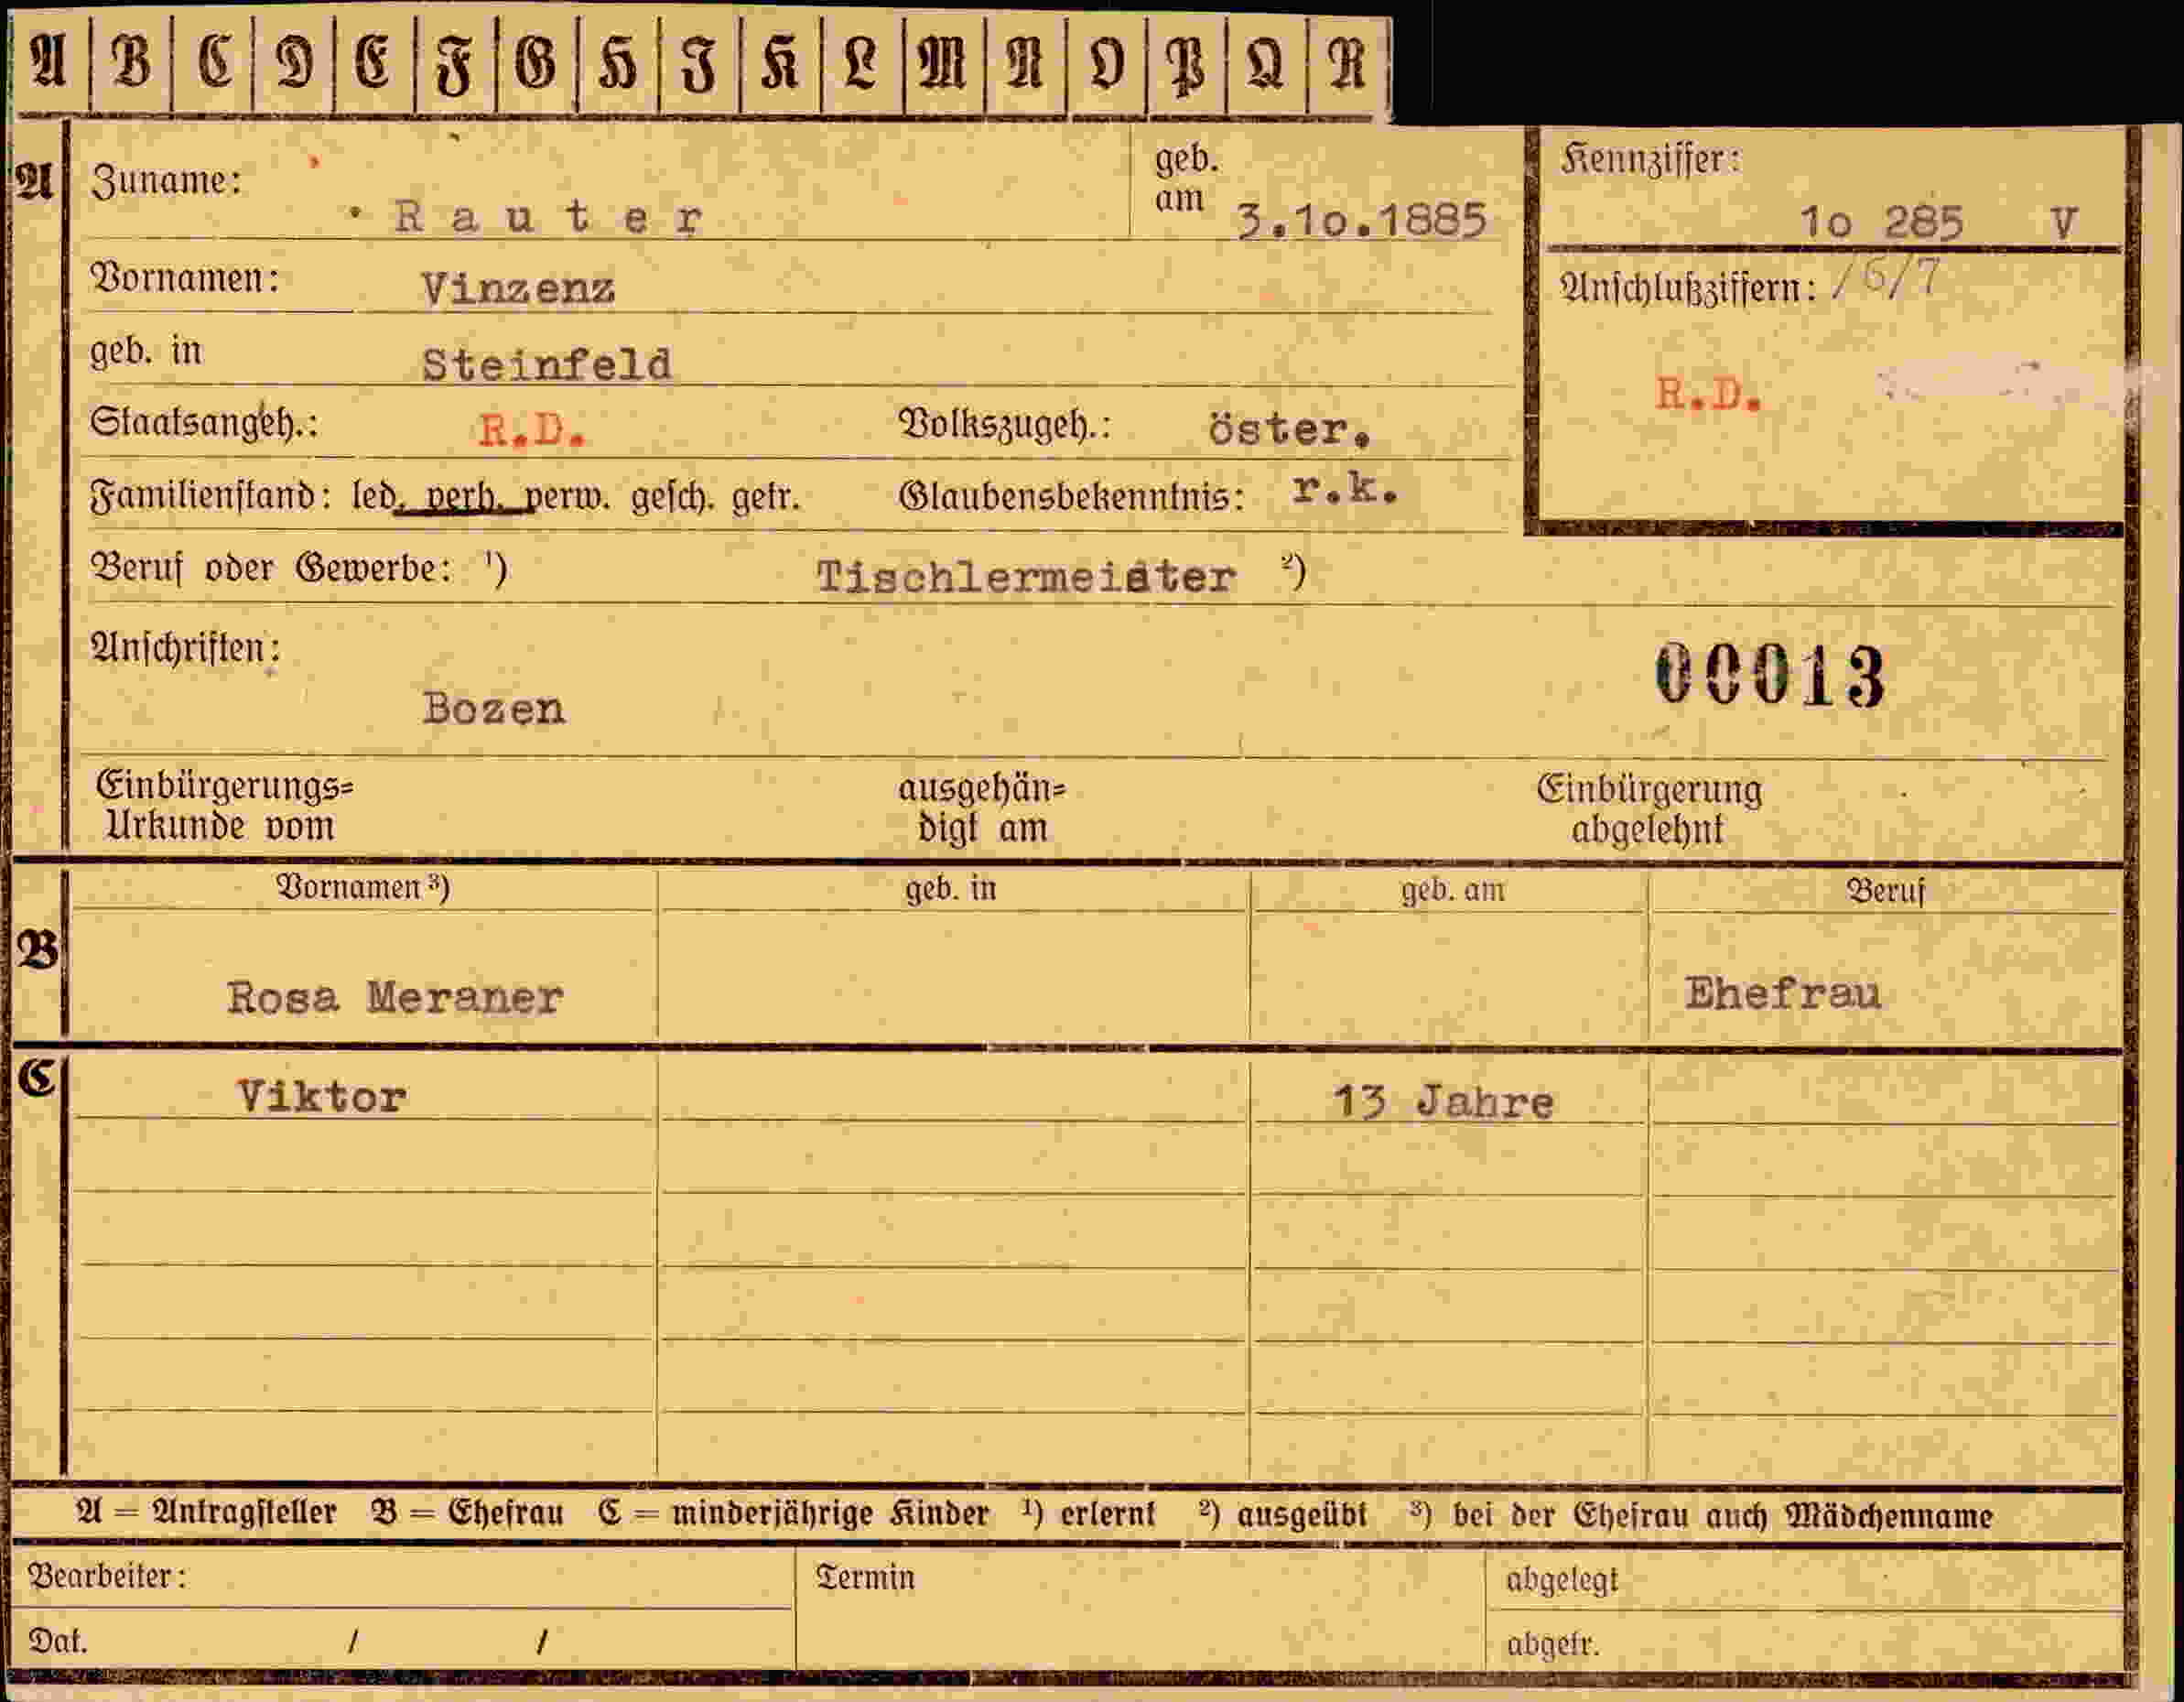 A B C D E F G H I K L M N O P Q R
A Zuname: Rauter geb. am 3.10.1885 Kennziffer: 10 285 V
Vornamen: Vinzenz Anschlußziffern: /6/7
geb. in Steinfeld R.D.
Staatsangeh.: R.D. Volkszugeh.: öster.
Familienstand: led. verh. verw. gesch. getr. Glaubensbekenntnis: r.k.
Beruf oder Gewerbe: ¹) Tischlermeister ²)
Anschriften: 00013
Bozen
Einbürgerungs= ausgehän= Einbürgerung
Urkunde vom digt am abgelehnt
Vornamen ³) geb. in geb. am Beruf
B Rosa Meraner Ehefrau
C Viktor 13 Jahre
A = Antragsteller B = Ehefrau C = minderjährige Kinder ¹) erlernt ²) ausgeübt ³) bei der Ehefrau auch Mädchenname
Bearbeiter: Termin abgelegt
Dat. / / abgetr.